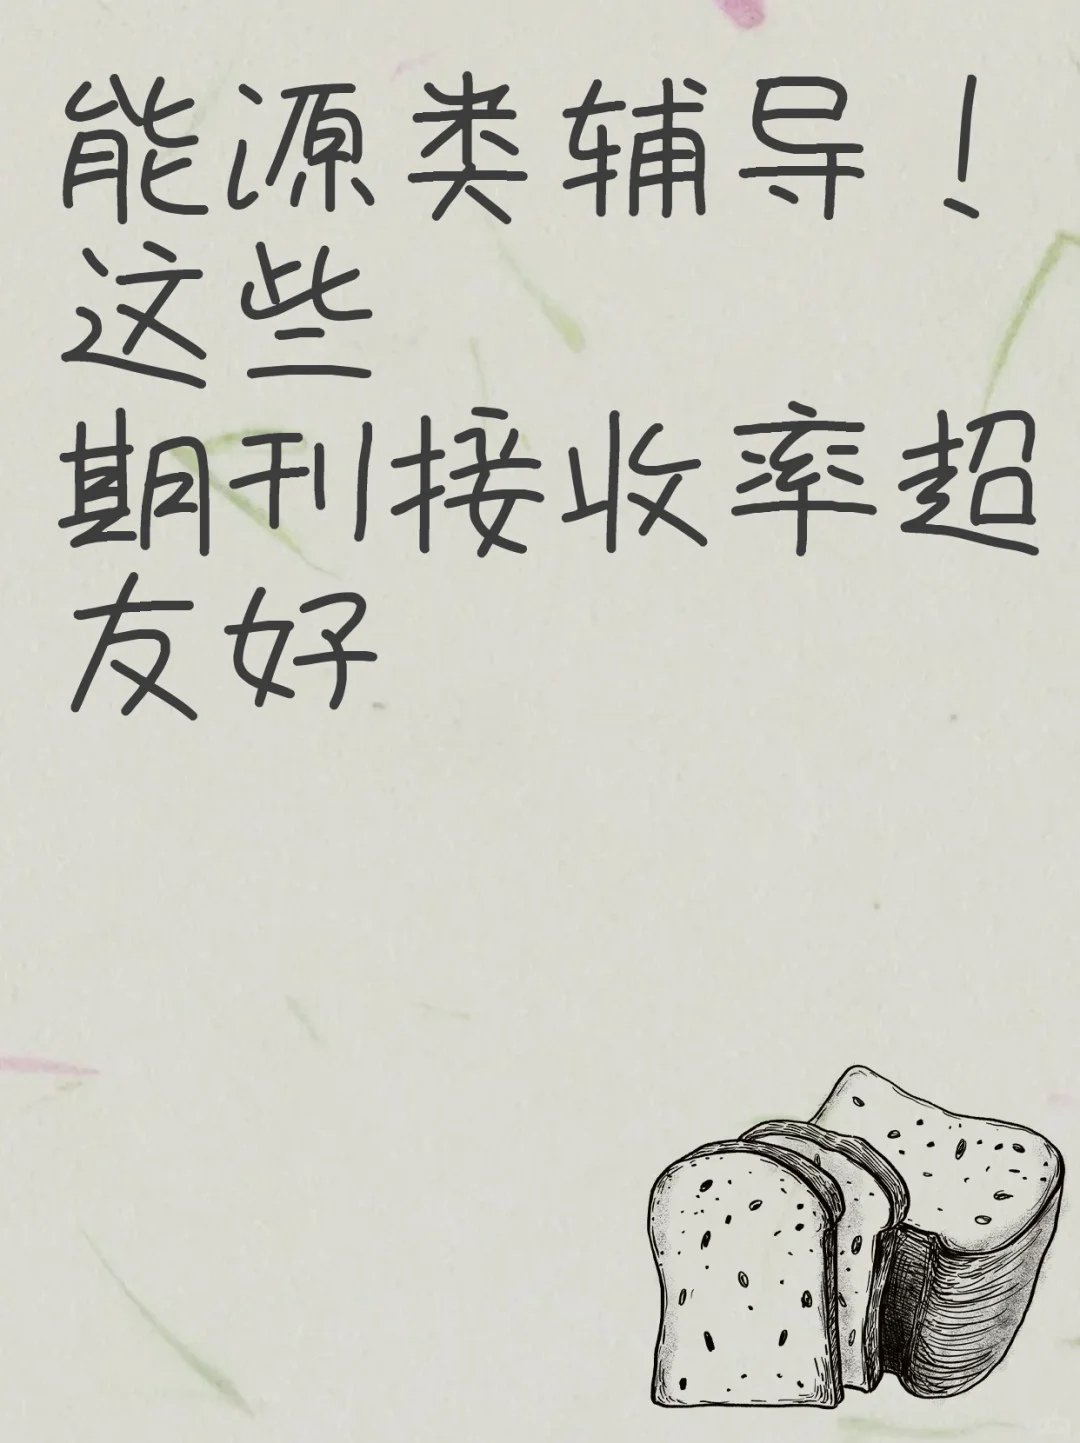 能源类辅导！
这些
期刊接收率超
友好